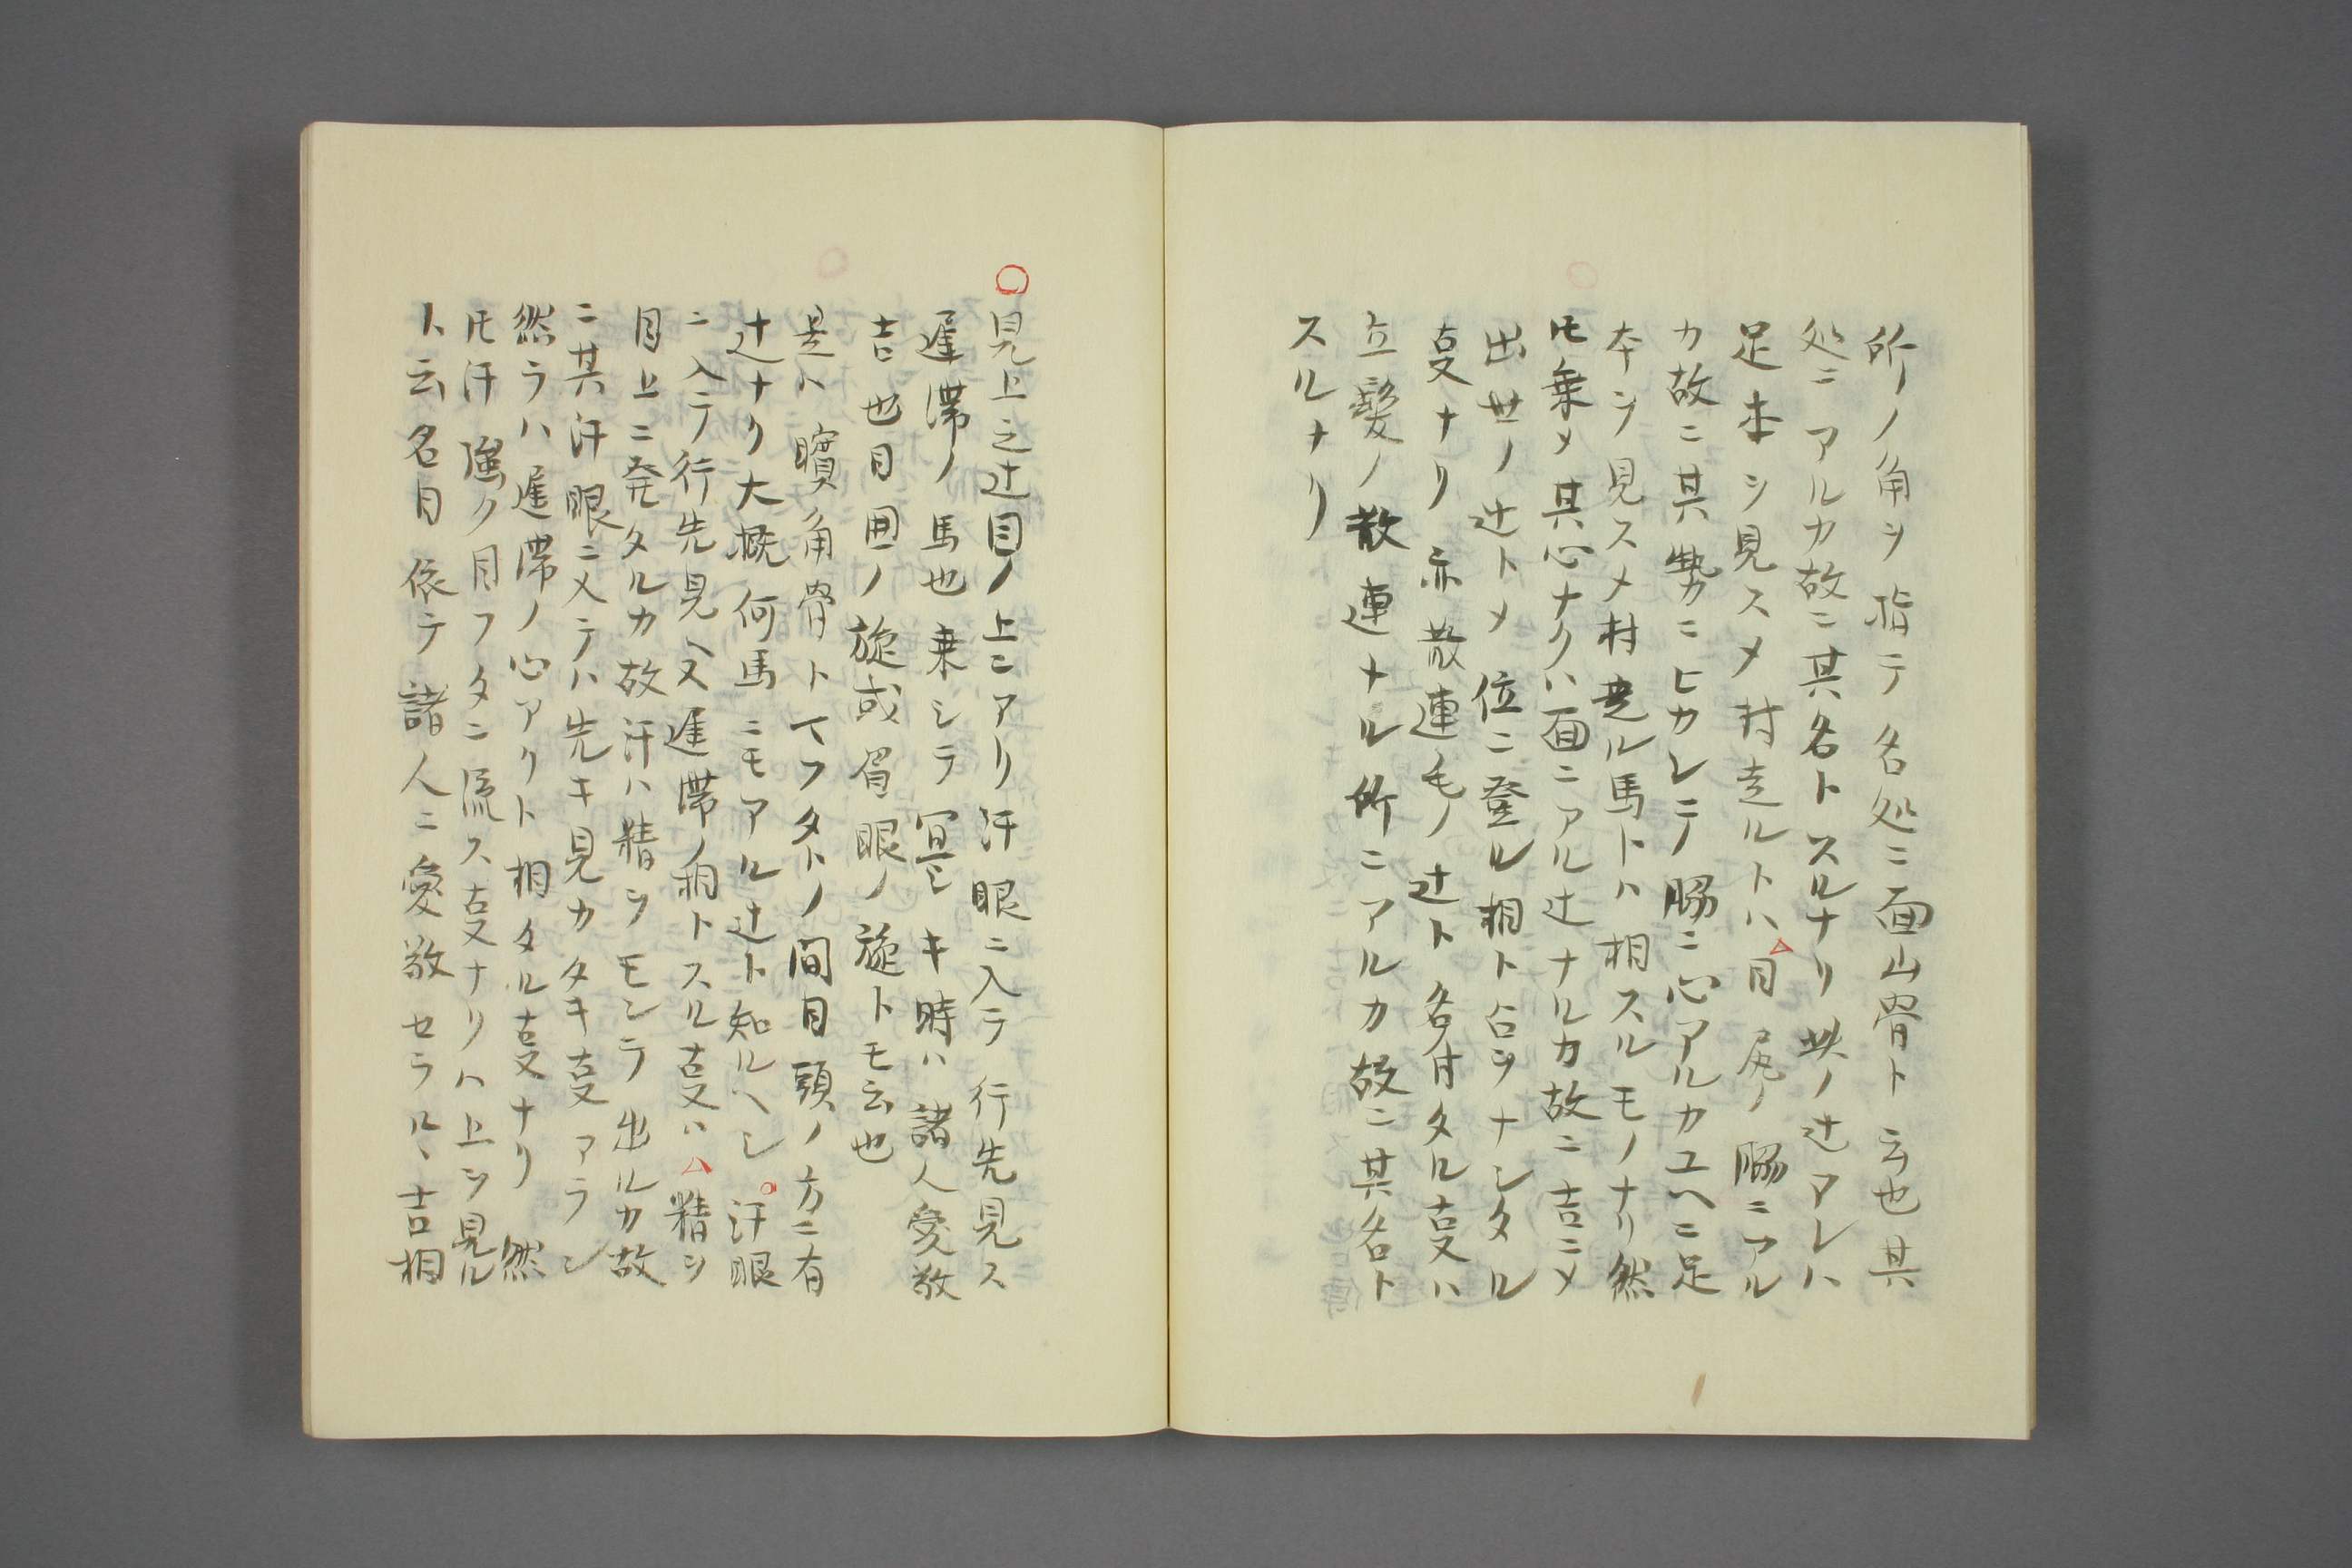 所ノ角ヲ指テ名処ニ面山骨ト云也其
処ニアルカ故ニ其名トスルナリ此ノ辻アレハ
足本ヲ見スメ村走ルトハ△目尻ノ脇ニアル
カ故ニ其勢カニヒカレテ脇ニ心アルカユヘニ足
本ヲ見スメ村走ル馬トハ相スルモノナリ然
𪜈乗メ其心ナクハ面ニアル辻ナルカ故ニ吉ニメ
出世ノ辻トメ位ニ登ル相ト占ヲナシタル
㕝ナリ亦散連毛ノ辻ト名付タル㕝ハ
立髪ノ散連ナル所ニアルカ故ニ其名ト
スルナリ
○見上之辻目ノ上ニアリ汗眼ニ入テ行先見ス
遅滞ノ馬也乗シラ冥シキ時ハ諸人愛敬
吉也目囲ノ旋或眉眼ノ旋トモ云也
是ハ矌角骨トマフタトノ間目頭ノ方ニ有
辻ナリ大概何馬ニモアル辻ト知ルヘシ○汗眼
ニ入テ行先見ヘス遅滞ノ相トスル㕝ハ△精ヲ
目上ニ発タルカ故汗ハ精ヲモシラ出ルカ故
ニ其汗眼ニ入テハ先キ見カタキ㕝アラン
然ラハ遅滞ノ心アリト相タル㕝ナリ然
𪜈汗強ク目フタニ流ス㕝ナリハ上ヲ見ル
ト云名目依テ諸人ニ愛敬セラルヽ吉相